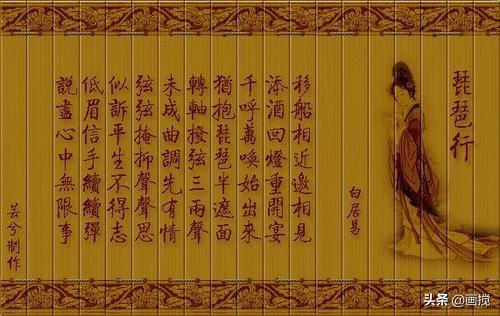 琵琶行
白居易
移船相近邀相見
添酒回燈重開宴
千呼萬喚始出來
猶抱琵琶半遮面
轉軸撥弦三兩聲
未成曲調先有情
弦弦掩抑聲聲思
似訴平生不得志
低眉信手續續彈
說盡心中無限事
芸兮制作
头条@画搅